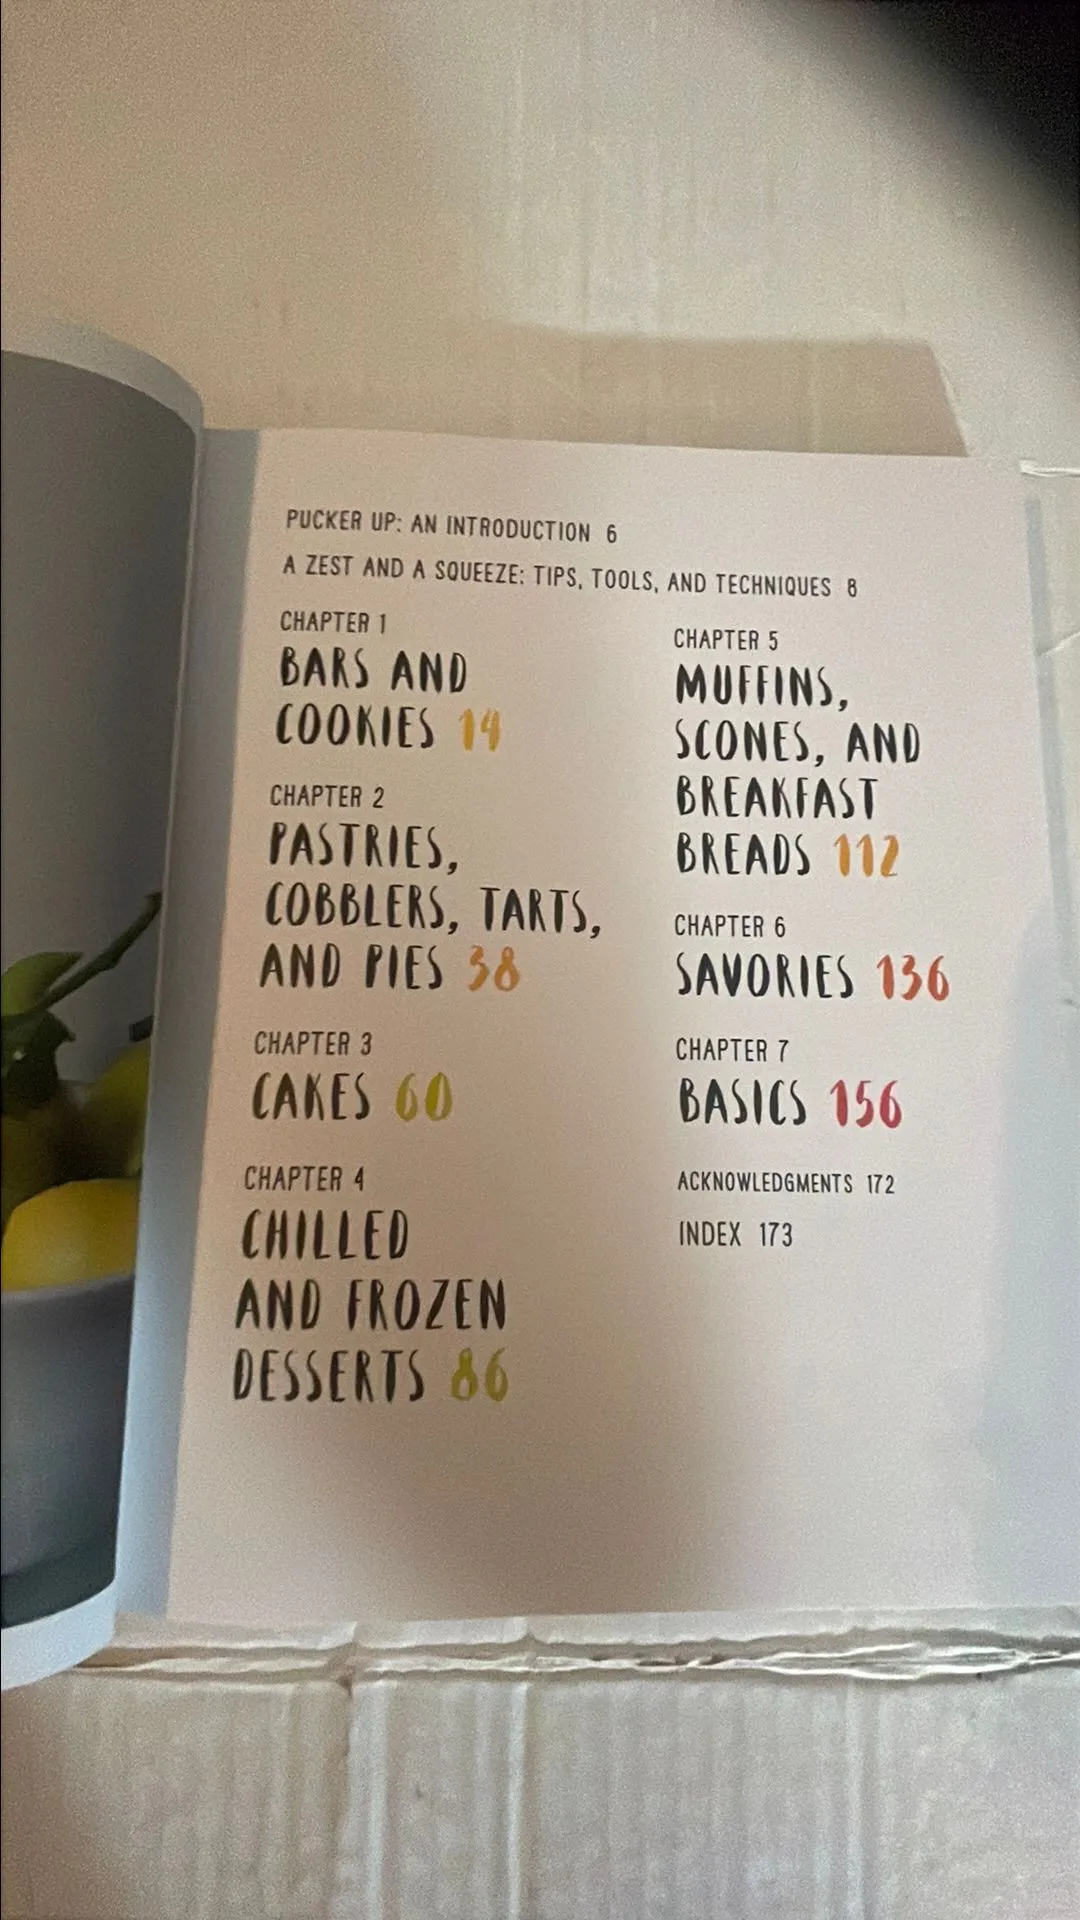 PUCKER UP: AN INTRODUCTION 6
A ZEST AND A SQUEEZE: TIPS, TOOLS, AND TECHNIQUES 8
CHAPTER 1
BARS AND
COOKIES 14
CHAPTER 2
PASTRIES,
COBBLERS, TARTS,
AND PIES 38
CHAPTER 3
CAKES 60
CHAPTER 4
CHILLED
AND FROZEN
DESSERTS 86
CHAPTER 5
MUFFINS,
SCONES, AND
BREAKFAST
BREADS 112
CHAPTER 6
SAVORIES 136
CHAPTER 7
BASICS 156
ACKNOWLEDGMENTS 172
INDEX 173